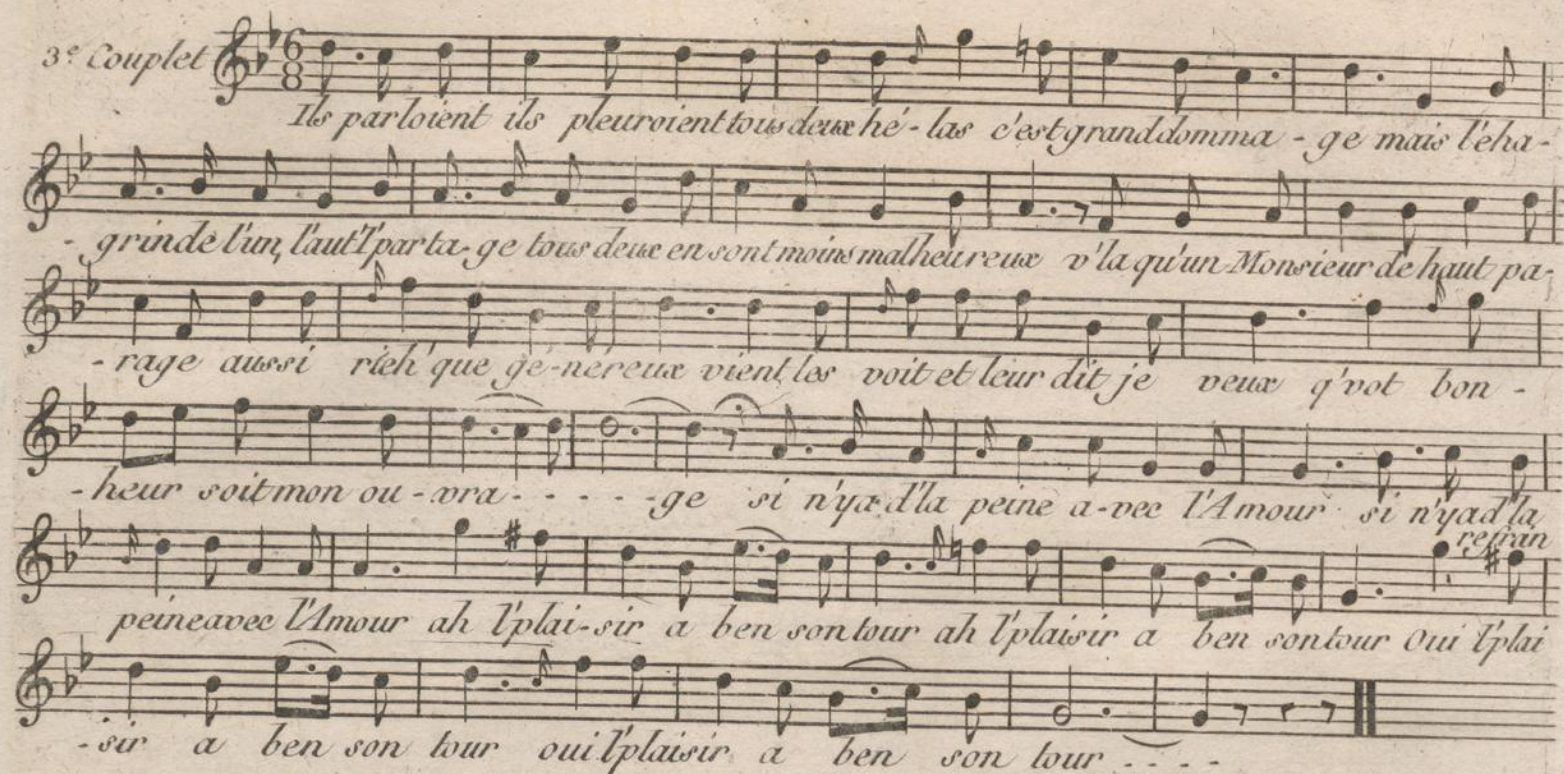 3e Couplet
Ils parloient ils pleuroient tous deux hé - las c'est grand domma - ge mais l'cha-
- grin de l'un, l'aut' l'parta - ge tous deux en sont moins malheureux v'la qu'un Monsieur de haut pa-
- rage aussi rich' que gé - néreux vient les voit et leur dit je veux q'vot bon -
- heur soit mon ou - vra - - - - - ge si n'ya d'la peine a - vec l'Amour si n'ya d'la
refrain
peine avec l'Amour ah l'plai - sir a ben son tour ah l'plaisir a ben son tour Oui l'plai
- sir a ben son tour oui l'plaisir a ben son tour - - - -